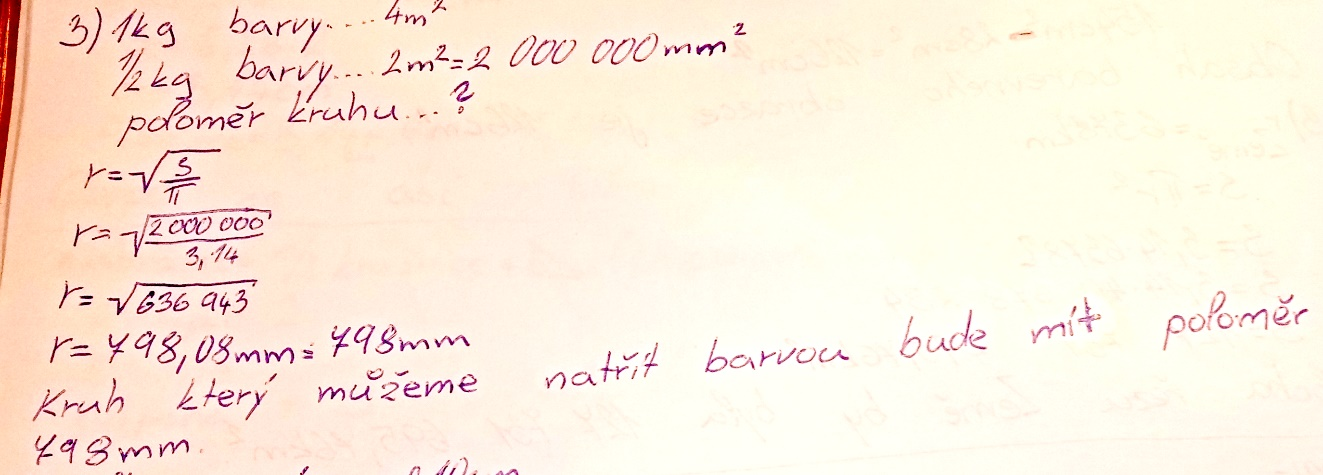 3) 1kg barvy.... 4m²
1/2kg barvy... 2m²=2 000 000mm²
poloměr kruhu...?
r=√S/π
r=√2 000 000/3,14
r=√636 943
r= 798,08mm≐ 798mm
Kruh který můžeme natřít barvou bude mít poloměr
798mm.